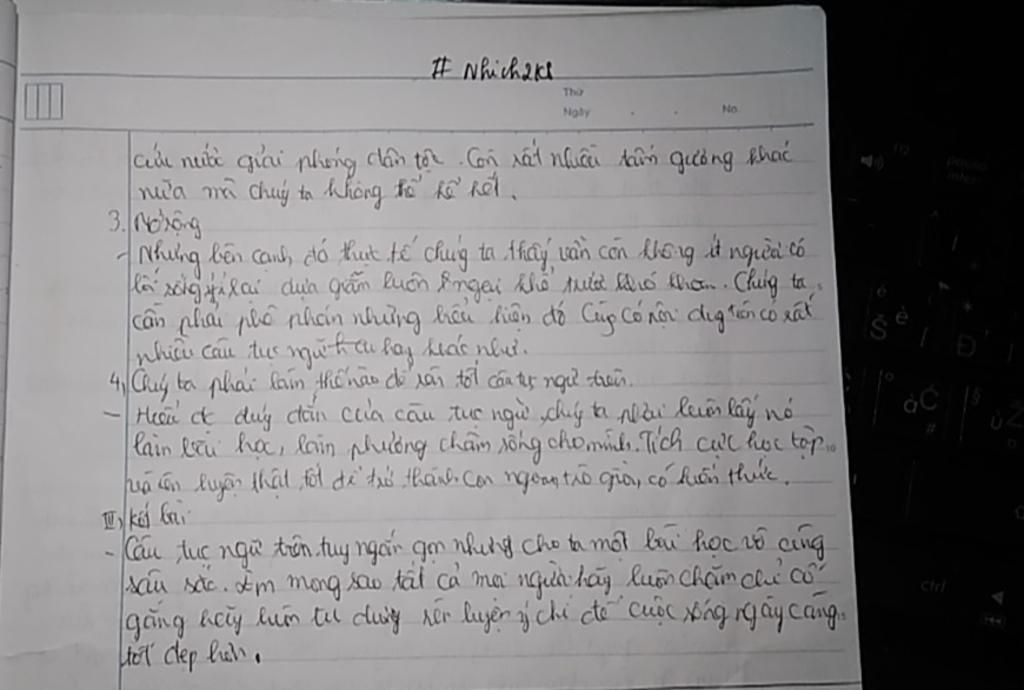 # Nhich2k8
Thứ
Ngày . . No.
cứu nước giải phóng dân tộc. Còn rất nhiều tấm gương khác
nữa mà chúng ta không thể kể hết.
3. Mở rộng
- Nhưng bên cạnh, đó thực tế chúng ta thấy vẫn còn không ít người có
lối sống ỷ lại dựa giẫm luôn ngại khổ trước khó khăn. Chúng ta
cần phải phê phán những biểu hiện đó Cũng có nội dung trên có rất
nhiều câu tục ngữ hay khác như.
4, Chúng ta phải làm thế nào để tốt câu tục ngữ trên.
- Hiểu đc đúng đắn của câu tục ngữ, chúng ta phải luôn lấy nó
làm bài học, làm phương châm sống cho mình. Tích cực học tập
và rèn luyện thật tốt để trở thành con ngoan, trò giỏi, có kiến thức.
III, Kết bài
- Câu tục ngữ trên tuy ngắn gọn nhưng cho ta một bài học vô cùng
sâu sắc. Em mong sao tất cả mọi người hãy luôn chăm chỉ cố
gắng hãy luôn tu dưỡng rèn luyện ý chí để cuộc sống ngày càng
tốt đẹp hơn.